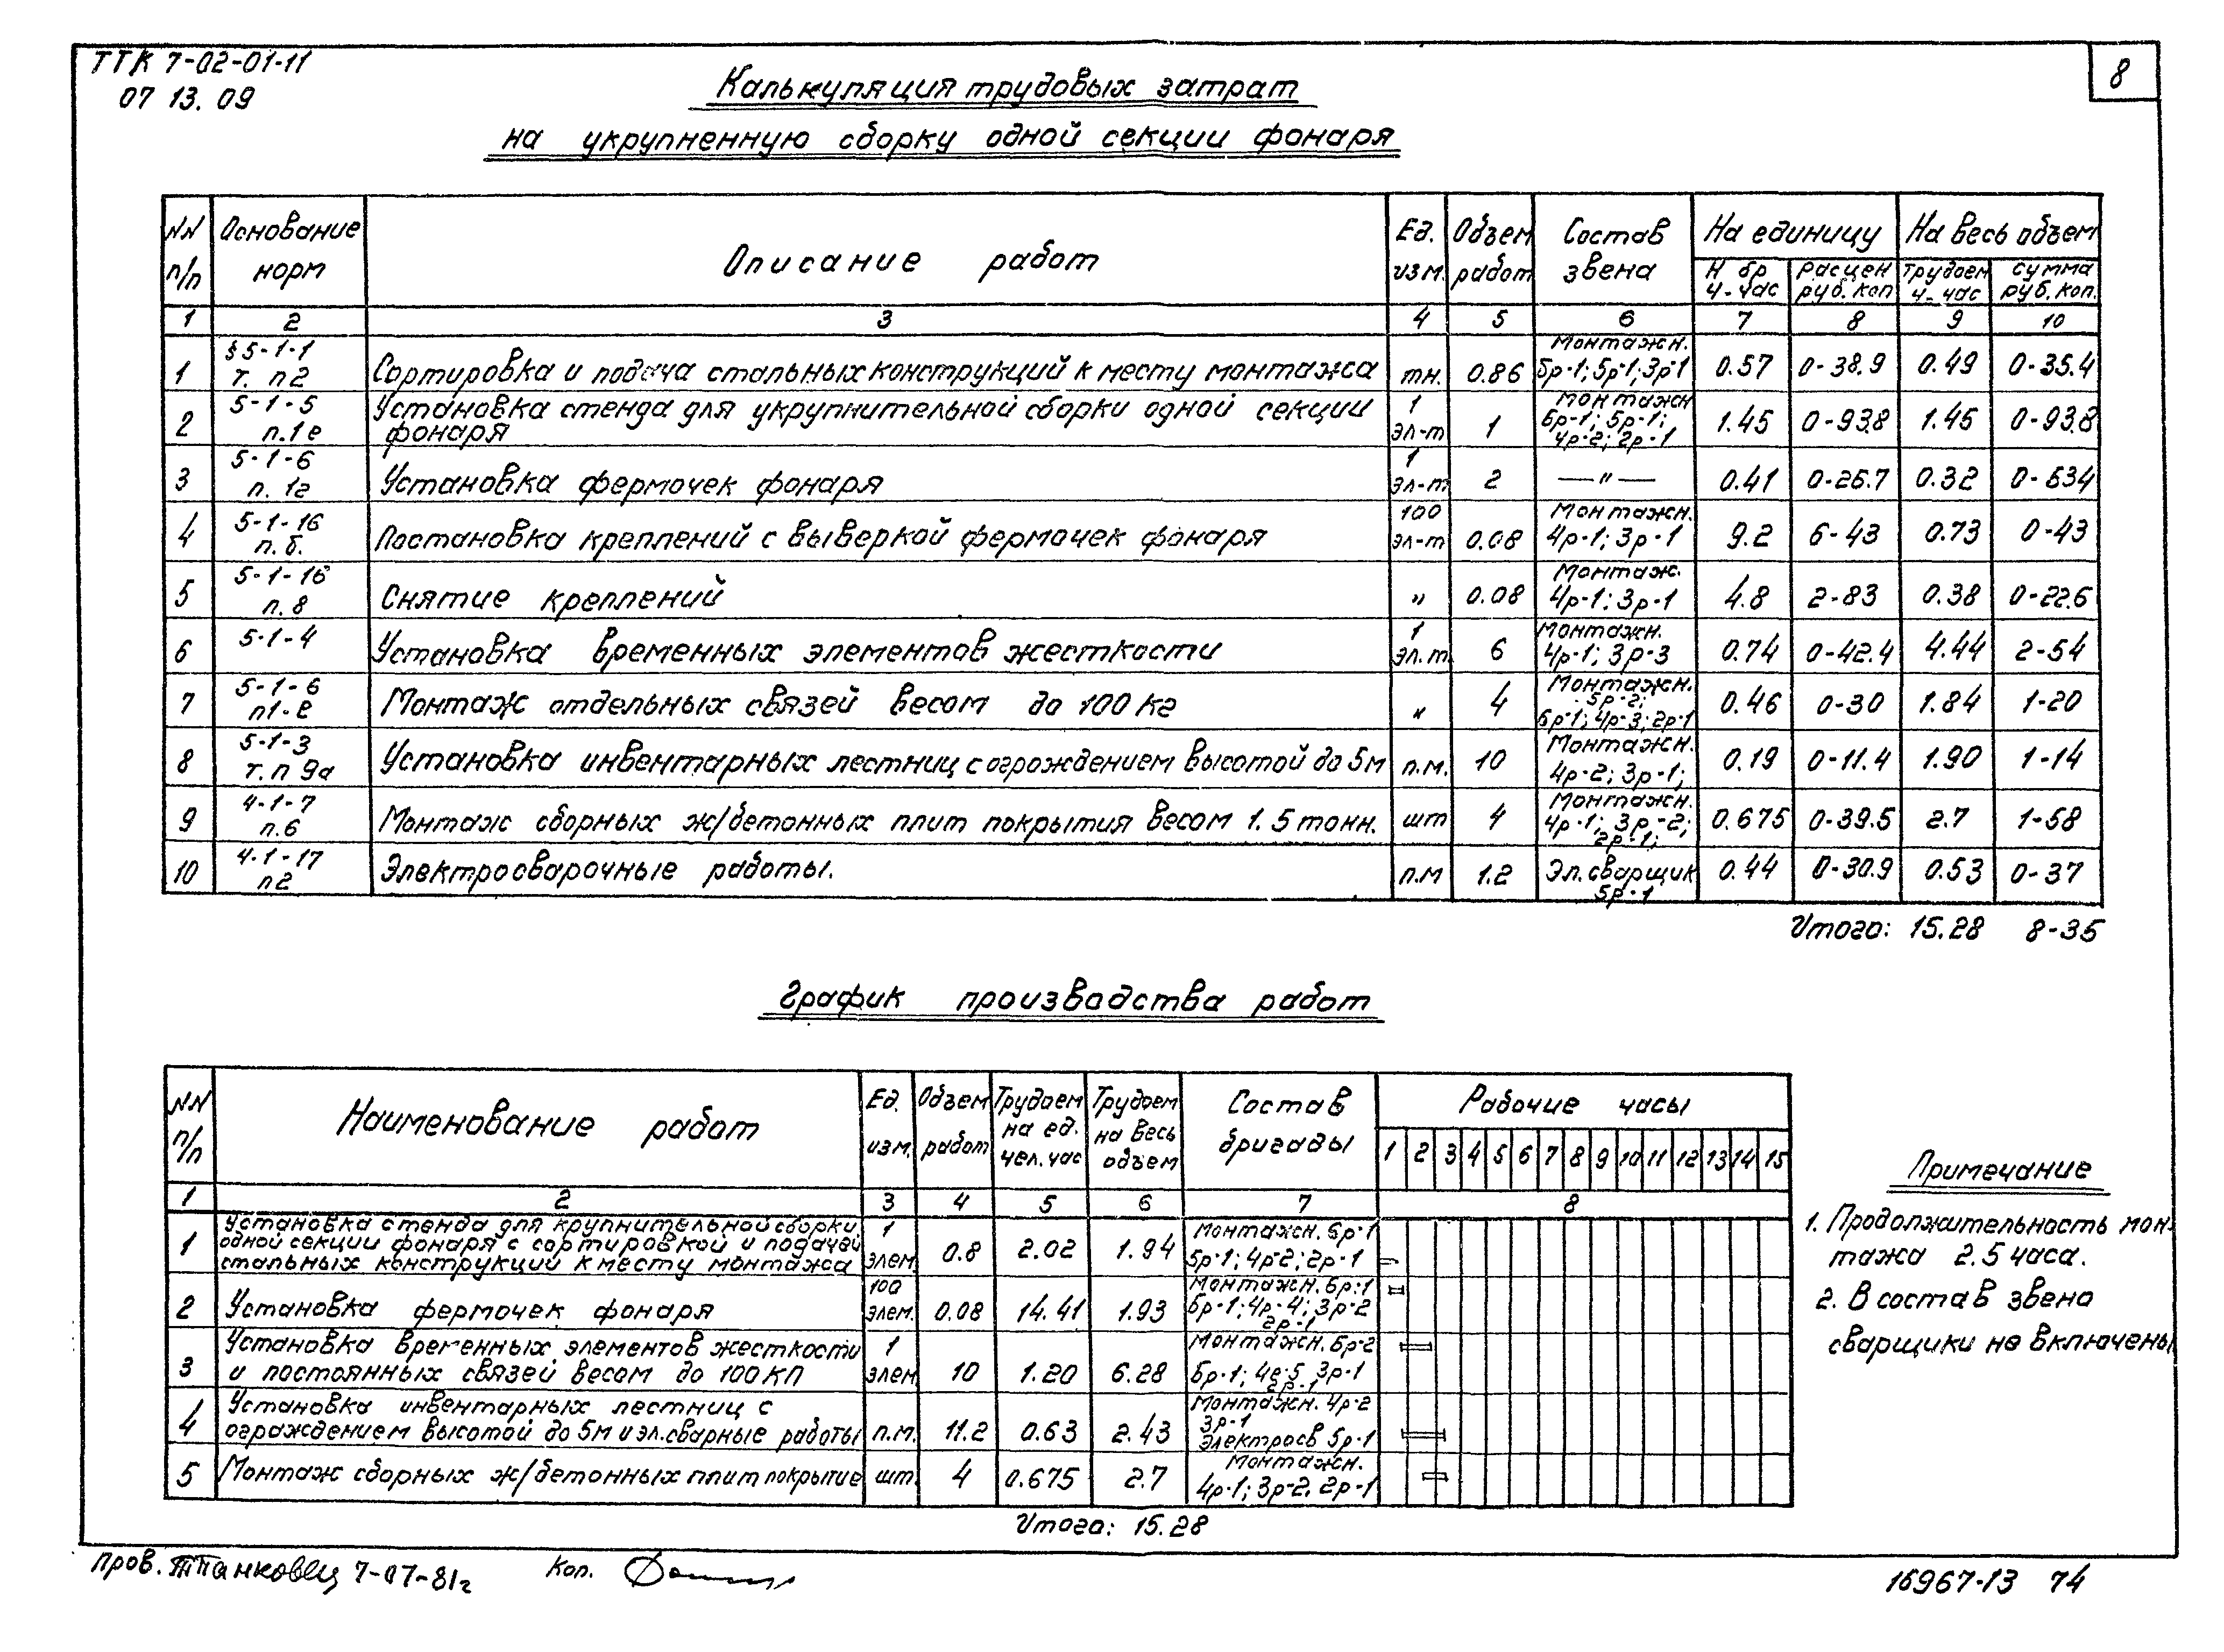 ТТК 7-02-01-11
07 13. 09
8
Калькуляция трудовых затрат
на укрупненную сборку одной секции фонаря
NN п/п | Основание норм | Описание работ | Ед. изм. | Объем работ | Состав звена | На единицу | На весь объем
Н вр ч-час | Расцен руб. коп | Трудоем ч-час | Сумма руб. коп.
1 | 2 | 3 | 4 | 5 | 6 | 7 | 8 | 9 | 10
1 | §5-1-1 т. п2 | Сортировка и подача стальных конструкций к месту монтажа | тн. | 0.86 | Монтажн. 6р-1; 5р-1; 3р-1 | 0.57 | 0-38.9 | 0.49 | 0-35.4
2 | 5-1-5 п.1е | Установка стенда для укрупнительной сборки одной секции фонаря | 1 эл-т | 1 | Монтажн 6р-1; 5р-1; 4р-2; 2р-1 | 1.45 | 0-93.8 | 1.45 | 0-93.8
3 | 5-1-6 п. 1г | Установка фермочек фонаря | 1 эл-т | 2 | —"— | 0.41 | 0-26.7 | 0.32 | 0-534
4 | 5-1-16 п. б. | Постановка креплений с выверкой фермочек фонаря | 100 эл-т | 0.08 | Монтажн. 4р-1; 3р-1 | 9.2 | 6-43 | 0.73 | 0-43
5 | 5-1-16 п. 8 | Снятие креплений | " | 0.08 | Монтаж. 4р-1; 3р-1 | 4.8 | 2-83 | 0.38 | 0-22.6
6 | 5-1-4 | Установка временных элементов жесткости | 1 эл.т | 6 | Монтажн. 4р-1; 3р-3 | 0.74 | 0-42.4 | 4.44 | 2-54
7 | 5-1-6 п1-е | Монтаж отдельных связей весом до 100 кг | " | 4 | Монтажн. 5р-2; 6р-1; 4р-3; 2р-1 | 0.46 | 0-30 | 1.84 | 1-20
8 | 5-1-3 т. п 9а | Установка инвентарных лестниц с ограждением высотой до 5м | п.м. | 10 | Монтажн. 4р-2; 3р-1; | 0.19 | 0-11.4 | 1.90 | 1-14
9 | 4-1-7 п.6 | Монтаж сборных ж/бетонных плит покрытия весом 1.5 тонн. | шт | 4 | Монтажн. 4р-1; 3р-2; 2р-1; | 0.675 | 0-39.5 | 2.7 | 1-58
10 | 4-1-17 п2 | Электросварочные работы. | п.м | 1.2 | Эл.сварщик 5р-1 | 0.44 | 0-30.9 | 0.53 | 0-37
Итого: 15.28 8-35
График производства работ
NN п/п | Наименование работ | Ед. изм. | Объем работ | Трудоем на ед. чел. час | Трудоем на весь объем | Состав бригады | Рабочие часы
1 2 3 4 5 6 7 8 9 10 11 12 13 14 15
1 | 2 | 3 | 4 | 5 | 6 | 7 | 8
1 | Установка стенда для крупнительной сборки одной секции фонаря с сортировкой и подачей стальных конструкций к месту монтажа | 1 элем. | 0.8 | 2.02 | 1.94 | Монтажн. 6р-1 5р-1; 4р-2; 2р-1
2 | Установка фермочек фонаря | 100 элем. | 0.08 | 14.41 | 1.93 | Монтажн. 6р-1 5р-1; 4р-4; 3р-2 2р-1
3 | Установка временных элементов жесткости и постоянных связей весом до 100 КП | 1 элем. | 10 | 1.20 | 6.28 | Монтажн. 5р-2 6р-1; 4р-5 3р-1 2р-1
4 | Установка инвентарных лестниц с ограждением высотой до 5м и эл.сварные работы | п.м. | 11.2 | 0.63 | 2.43 | Монтажн. 4р-2 3р-1 Электросв 5р-1
5 | Монтаж сборных ж/бетонных плит покрытие | шт. | 4 | 0.675 | 2.7 | Монтажн. 4р-1; 3р-2. 2р-1
Итого: 15.28
Примечание
1. Продолжительность мон-
тажа 2.5 часа.
2. В состав звена
сварщики не включены
Пров. 7-07-81г
Коп.
16967-13 74